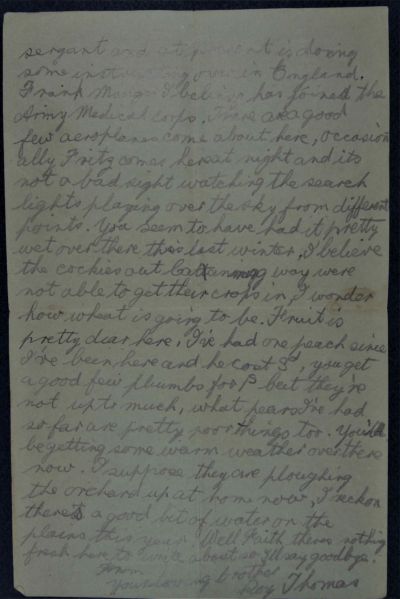 sergant and at present is doing
some instructing over in England.
Frank I believe has joined the
Army Medical Corps. There are a good
few aeroplanes come about here, occasion
ally Fritz comes here at night and its
not a bad sight watching the search
lights playing over the sky from different
points. You seem to have had it pretty
wet over there this last winter, I believe
the cockies out way were
not able to get their crops in, I wonder
how wheat is going to be. Fruit is
pretty dear here, I've had one peach since
I've been here and he cost 3d, you get
a good few plumbs for but they're
not up to much, what pears I've had
so far are pretty poor things too. You'll
be getting some warm weather over there
now. I suppose they are ploughing
the orchard up at home now, I reckon
there's a good bit of water on the
plains this year. Well Faith theres nothing
fresh here to write about so I'll say goodbye.
From
Your loving brother
Roy Thomas